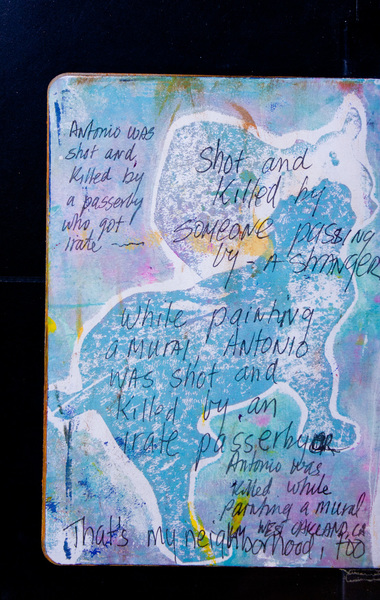 Antonio was
shot and,
killed by
a passerby
who got
irate
Shot and
killed by
someone passing
by - A STRANGER
While painting
a mural, Antonio
was shot and
killed by an
irate passerby
Antonio was
killed while
painting a mural
West Oakland, CA
That's my neighborhood, too